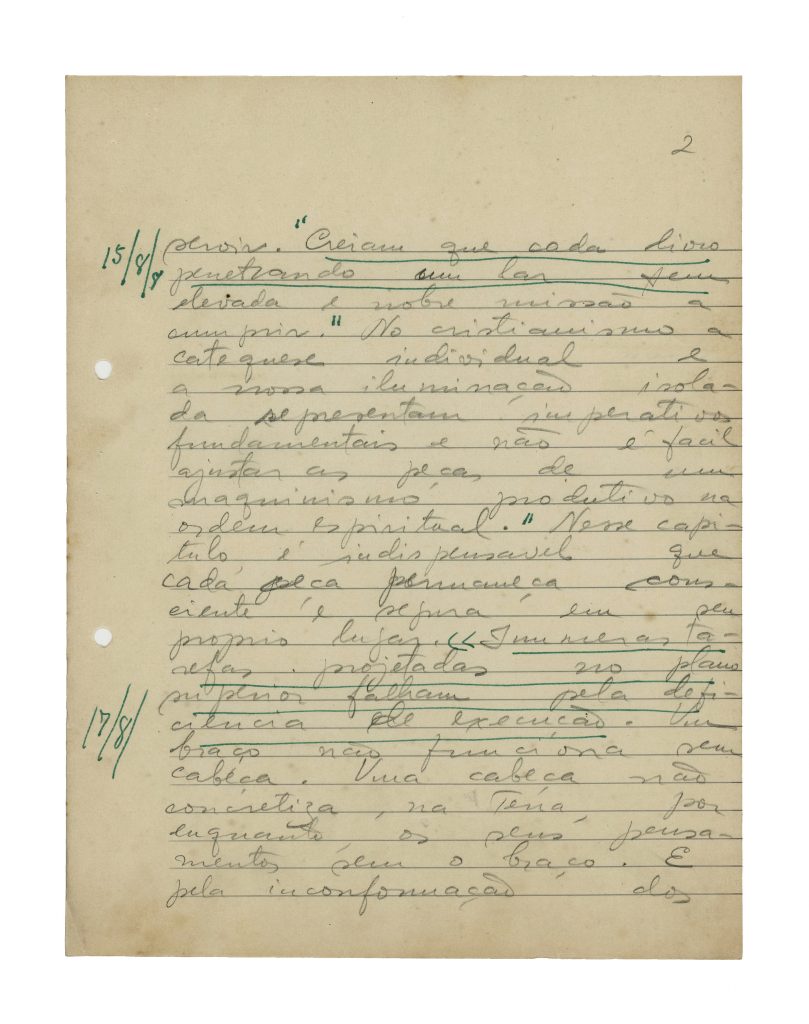 2
15/8/8
servir. "Creiam que cada livro
penetrando um lar tem
elevada e nobre missão a
cumprir." No cristianismo a
catequese individual e
a nossa iluminação isola-
da representam imperativos
fundamentais e não é facil
ajustar as peças de um
maquinismo produtivo na
ordem espiritual." Nesse capi-
tulo é indispensavel que
cada peça permaneça cons-
ciente e segura em seu
proprio lugar. "Inumeras ta-
refas projetadas no plano
superior falham pela defi-
17/8/
ciência de execução. Um
braço não funciona sem
cabeça. Uma cabeça não
concretiza, na Terra, por
enquanto os seus pensa-
mentos sem o braço. E
pela inconformação dos